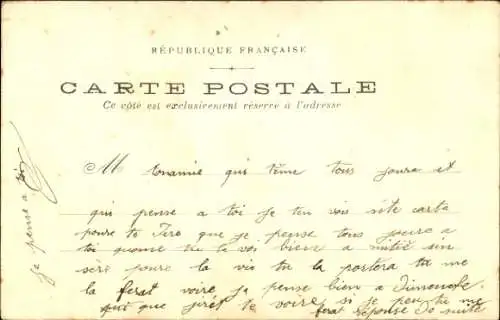 RÉPUBLIQUE FRANÇAISE
CARTE POSTALE
Ce côté est exclusivement réservé à l'adresse
M onamie qui t'ème tous joure et
qui pense a toi je ten vois site carta
poure te dire que je pense tous joure a
toi quome tu la voi bien a mitié sin
sère poure la vis tu la portera tu me
la ferat voire je pense bien a Dimanche
que jirét te voire si je peu tu me
ferat réponse
je pense a toi